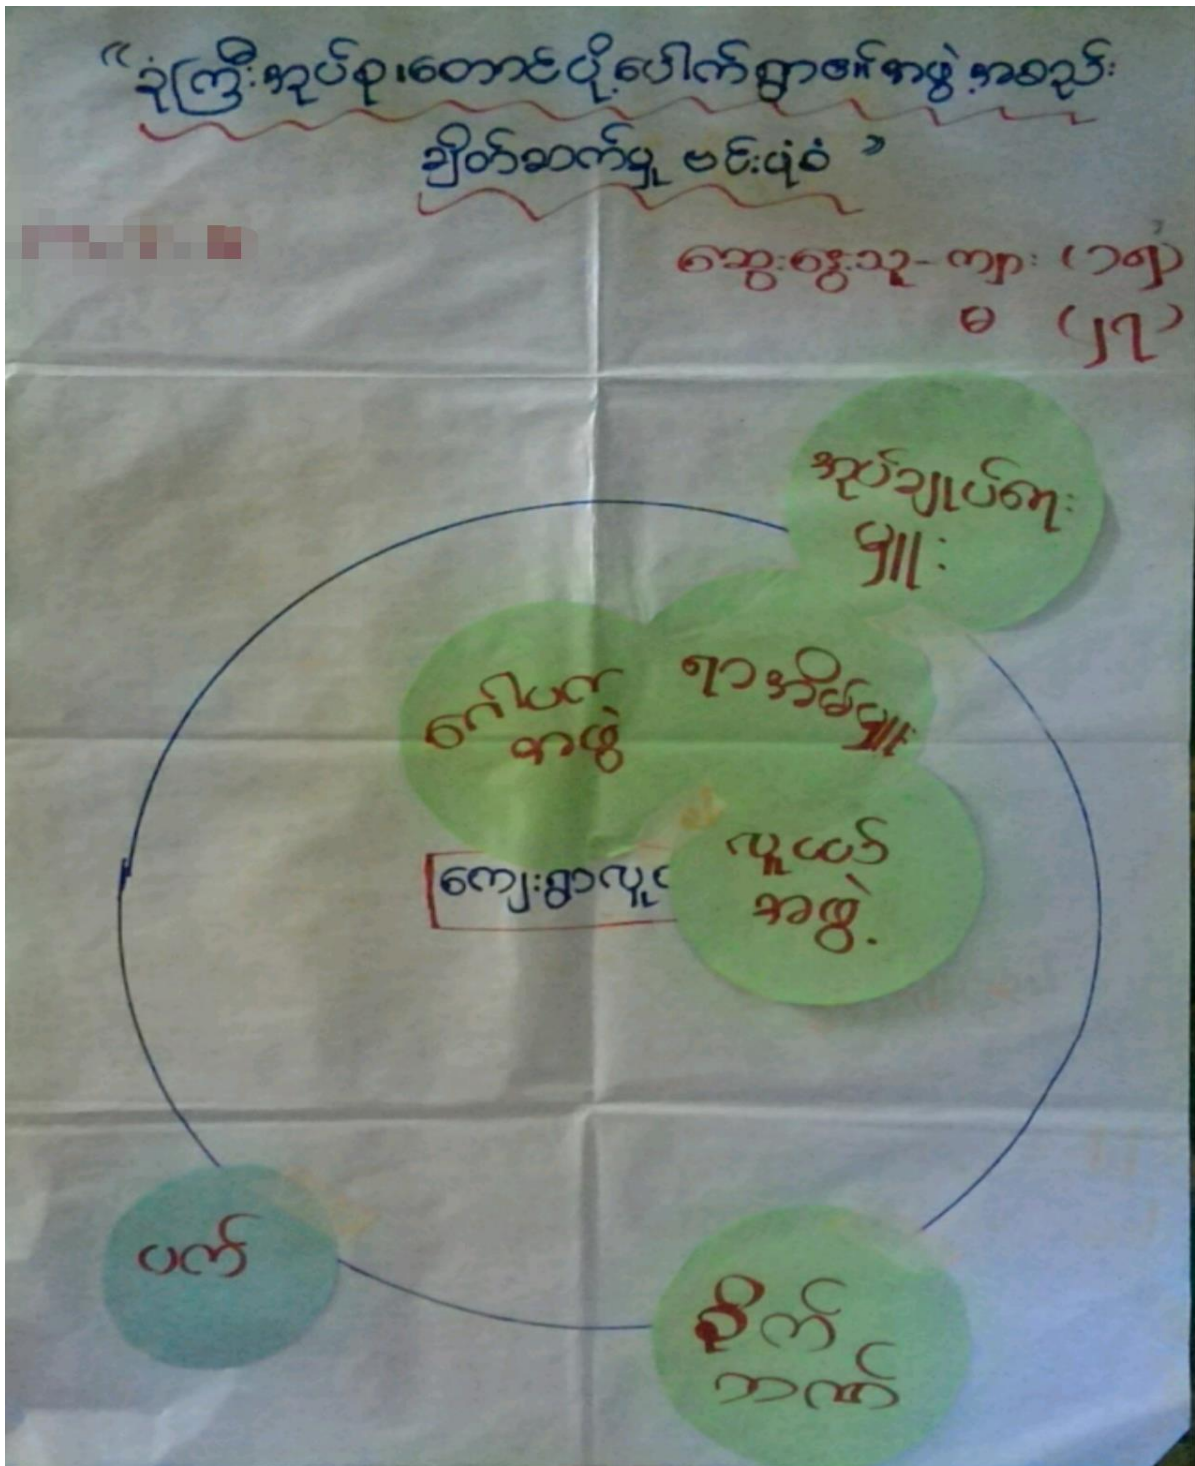 "ခုံကြီးအုပ်စု၊တောင်ပို့ပေါက်ရွာ၏အဖွဲ့အစည်း
ချိတ်ဆက်မှု ဗင်းပုံစံ"
ဆွေးနွေးသူ-ကျား (၁၅)
မ (၂၇)
အုပ်ချုပ်ရေး
မှူး
ရာအိမ်မှူး
ဂေါပက
အဖွဲ့
လူငယ်
အဖွဲ့.
ကျေးရွာလူ
ပက်
စိုက်
ဘဏ်